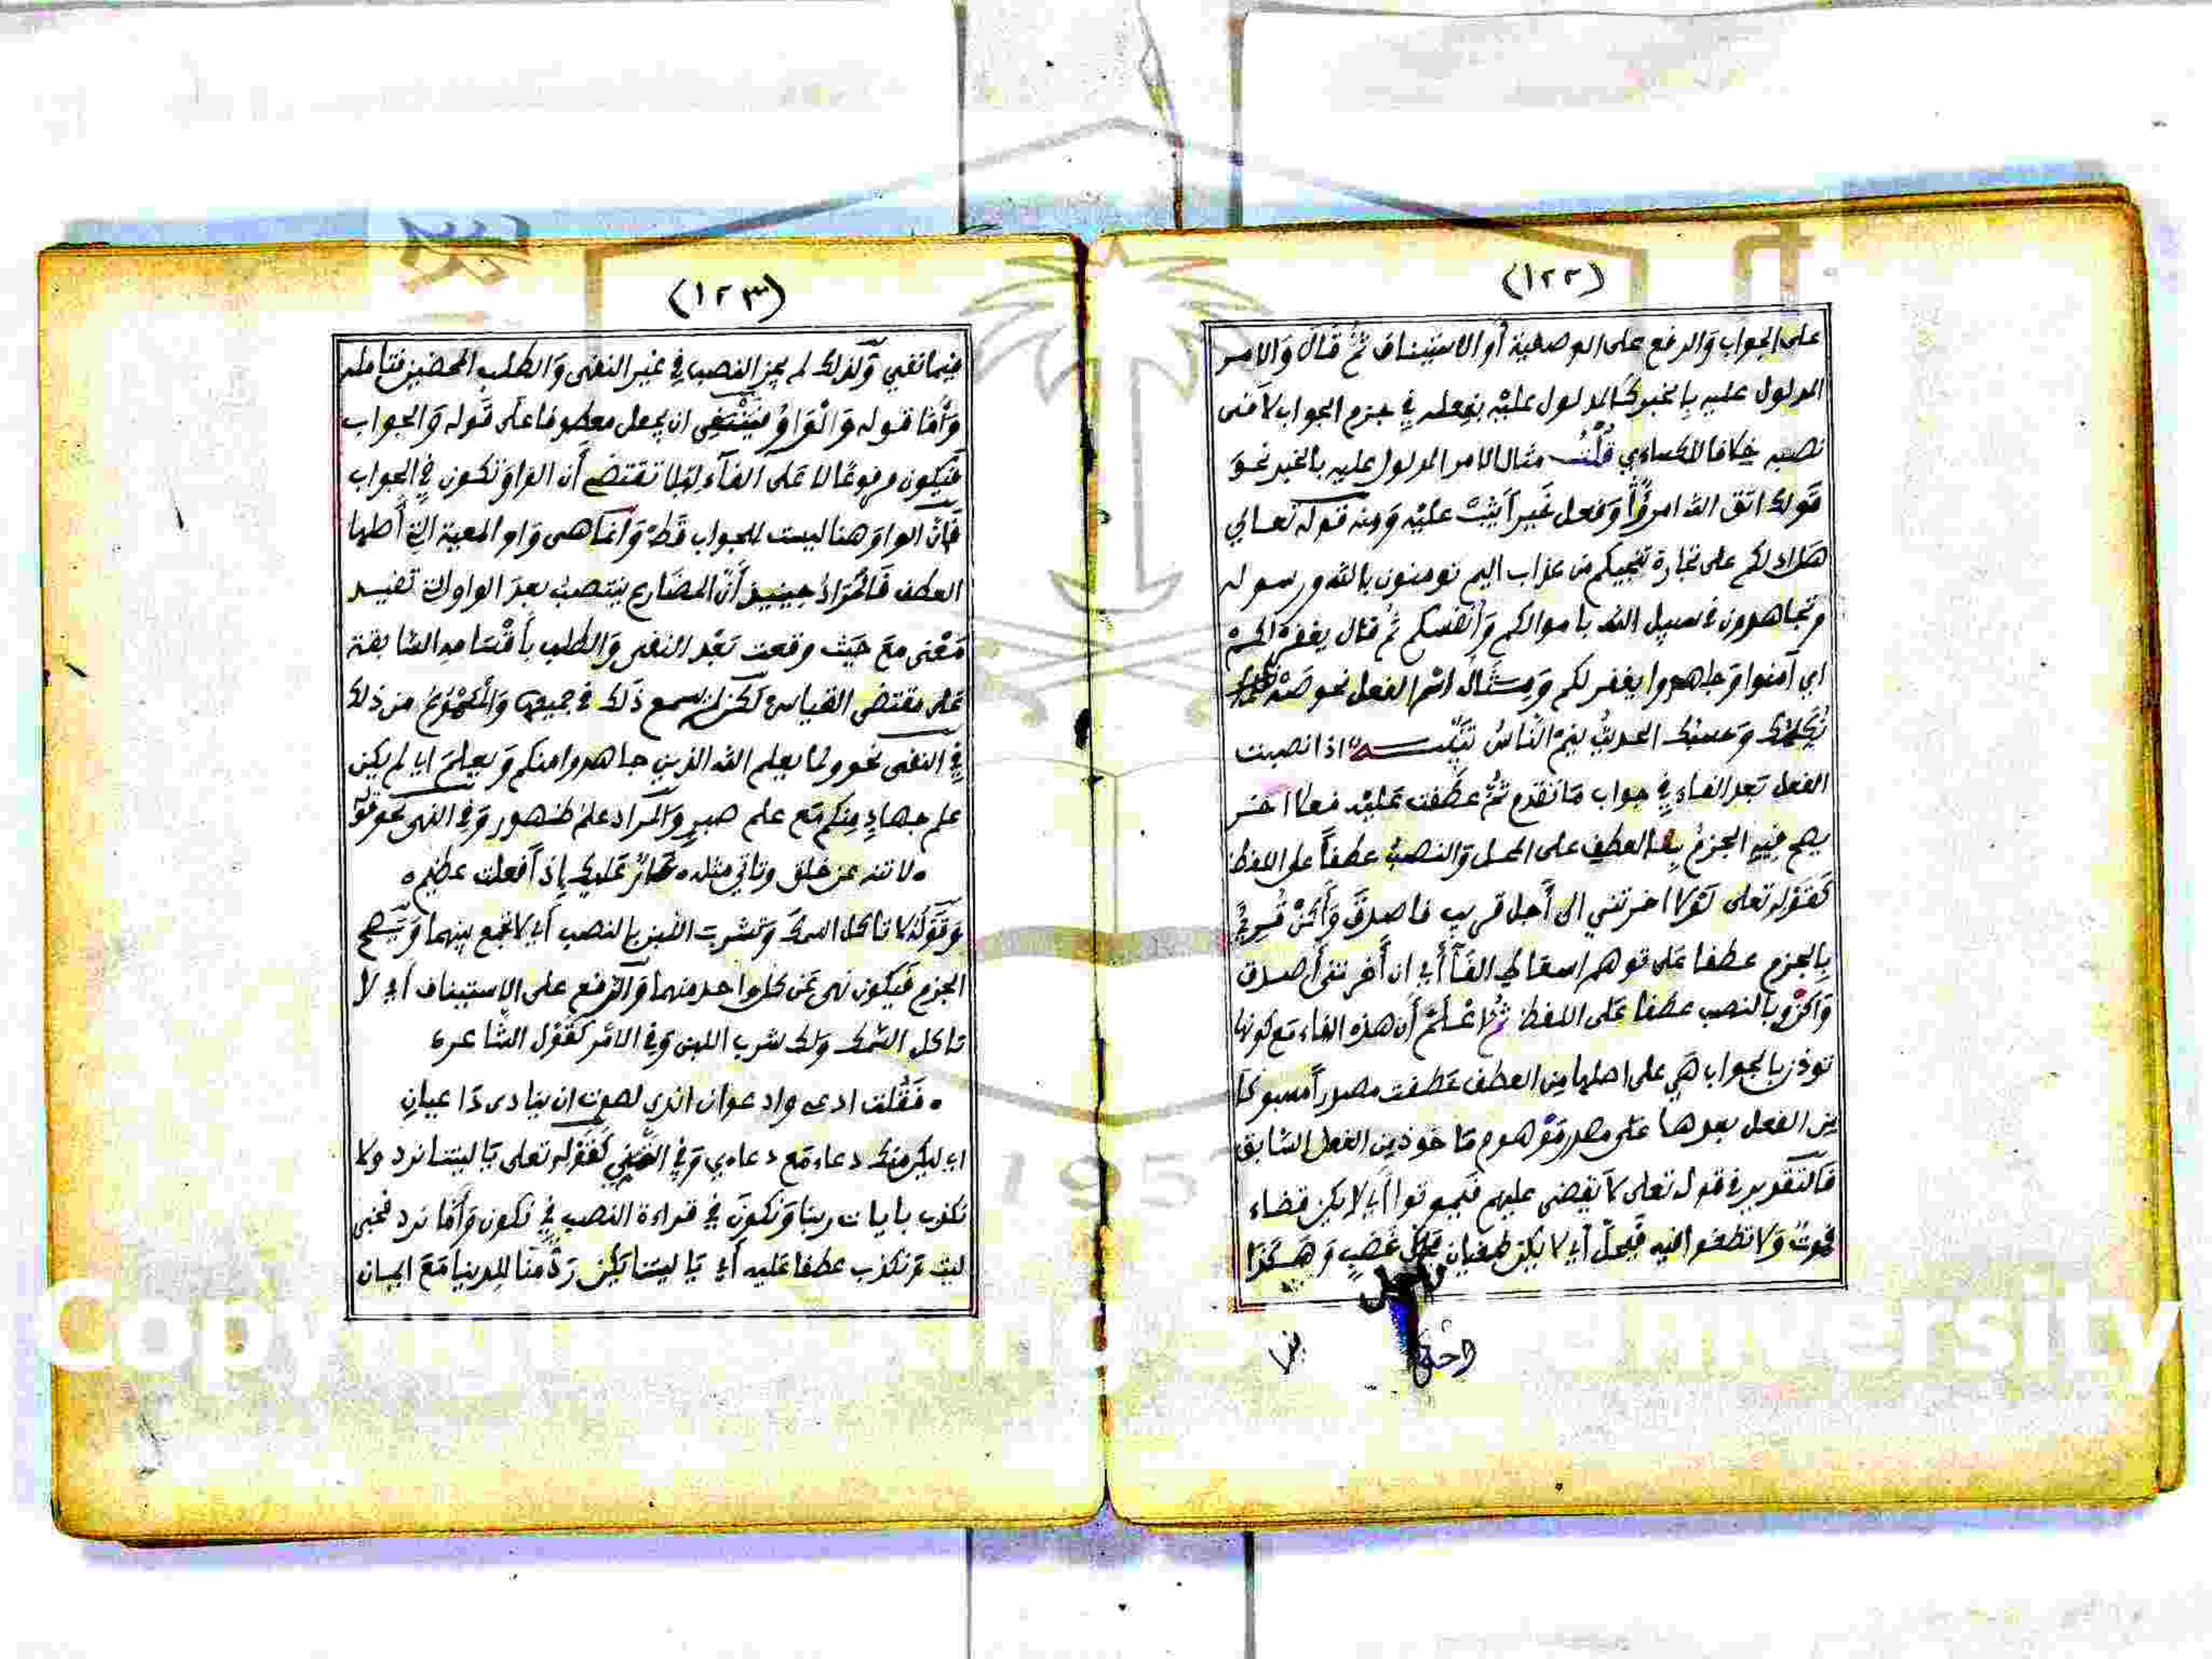 (١٢٢)
على الجواب والرفع على الوصفية أو الاستيناف ثم قال والامر
المدلول عليه بالخبر كالمدلول عليه بفعله في جزم الجواب لا في
نصبه خلافا للكساءي قلت مثال الامر المدلول عليه بالخبر نحو
قولك اتقى الله امرؤ وفعل خيرا يثب عليه ومنه قوله تعالي
هل ادلكم على تجارة تنجيكم من عذاب اليم تومنون بالله ورسوله
وتجاهدون في سبيل الله باموالكم وأنفسكم ثم قال يغفر لكم
اي آمنوا وجاهدوا يغفر لكم ومثال اسم الفعل نحو صه
وحسبك الحديث ينم الناس تنبيه اذا نصبت
الفعل بعد الفاء في جواب ما تقدم ثم عطفت عليه فعلا اخر
يصح فيه الجزم بالعطف على المحل والنصب عطفاً على اللفظ
كقوله تعلى لولا اخرتني الى أجل قريب فاصدق وأكن قرئ
بالجزم عطفا على توهم اسقاط الفاء أي ان أخرتني أصدق
واكن وبالنصب عطفا على اللفظ ثم اعلم أن هذه الفاء مع كونها
توذن بالجواب هي على اصلها من العطف عطفت مصدراً مسبوكا
من الفعل بعدها على مصدر موهوم ماخوذ من الفعل السابق
فالتقدير في قوله تعلى لا يقضى عليهم فيموتوا أي لا يكن قضاء
فموت ولا تطغوا فيه فيحل أي لا يكن طغيان فحلول غضب وهكذا
(١٢٣)
فيما بقي ولذلك لم يجز النصب في غير النفى والطلب المحضين فتامله
وأما قوله والواو فينتغى ان يجعل معطوفا على قوله والجواب
فيكون مرفوعا لا على الفاء ليلا تقتضي أن الواو تكون في الجواب
فان الواو هنا ليست للجواب قط وانما هى واو المعية التي أصلها
العطف فالمراد حينيذ أن المضارع ينتصب بعد الواو التي تفيد
معنى مع حيث وقعت بعد النفى والطلب بأقسامه السابقة
على مقتضى القياس لكن لم يسمع ذلك في جميعها والمسموع من ذلك
في النفى نحو ولما يعلم الله الذين جاهدوا منكم ويعلم اي لم يكن
علم جهاد منكم مع علم صبر والمراد علم ظهور وفي النهى نحو قوله
ه لا تنه عن خلق وتاتي مثله ه عار عليك إذا فعلت عظيم ه
وقولك لا تاكل السمك وتشرب اللبن بالنصب أي لا تجمع بينهما ويصح
الجزم فيكون نهى عن كل واحد منهما والرفع على الاستيناف أي لا
تاكل السمك ولك شرب اللبن وفي الامر كقول الشاعر ه
ه فقلت ادعي وادعوان اندى لصوت ان ينادى داعيان
اي ليكن منك دعاء مع دعاءي وفي التمني كقوله تعلى يا ليتنا نرد ولا
نكذب بايات ربنا ونكون في قراءة النصب في نكون وأما نرد فخبر
ليت ونكذب عطفا عليه أي يا ليتنا يكن رد منا للدنيا مع ايمان